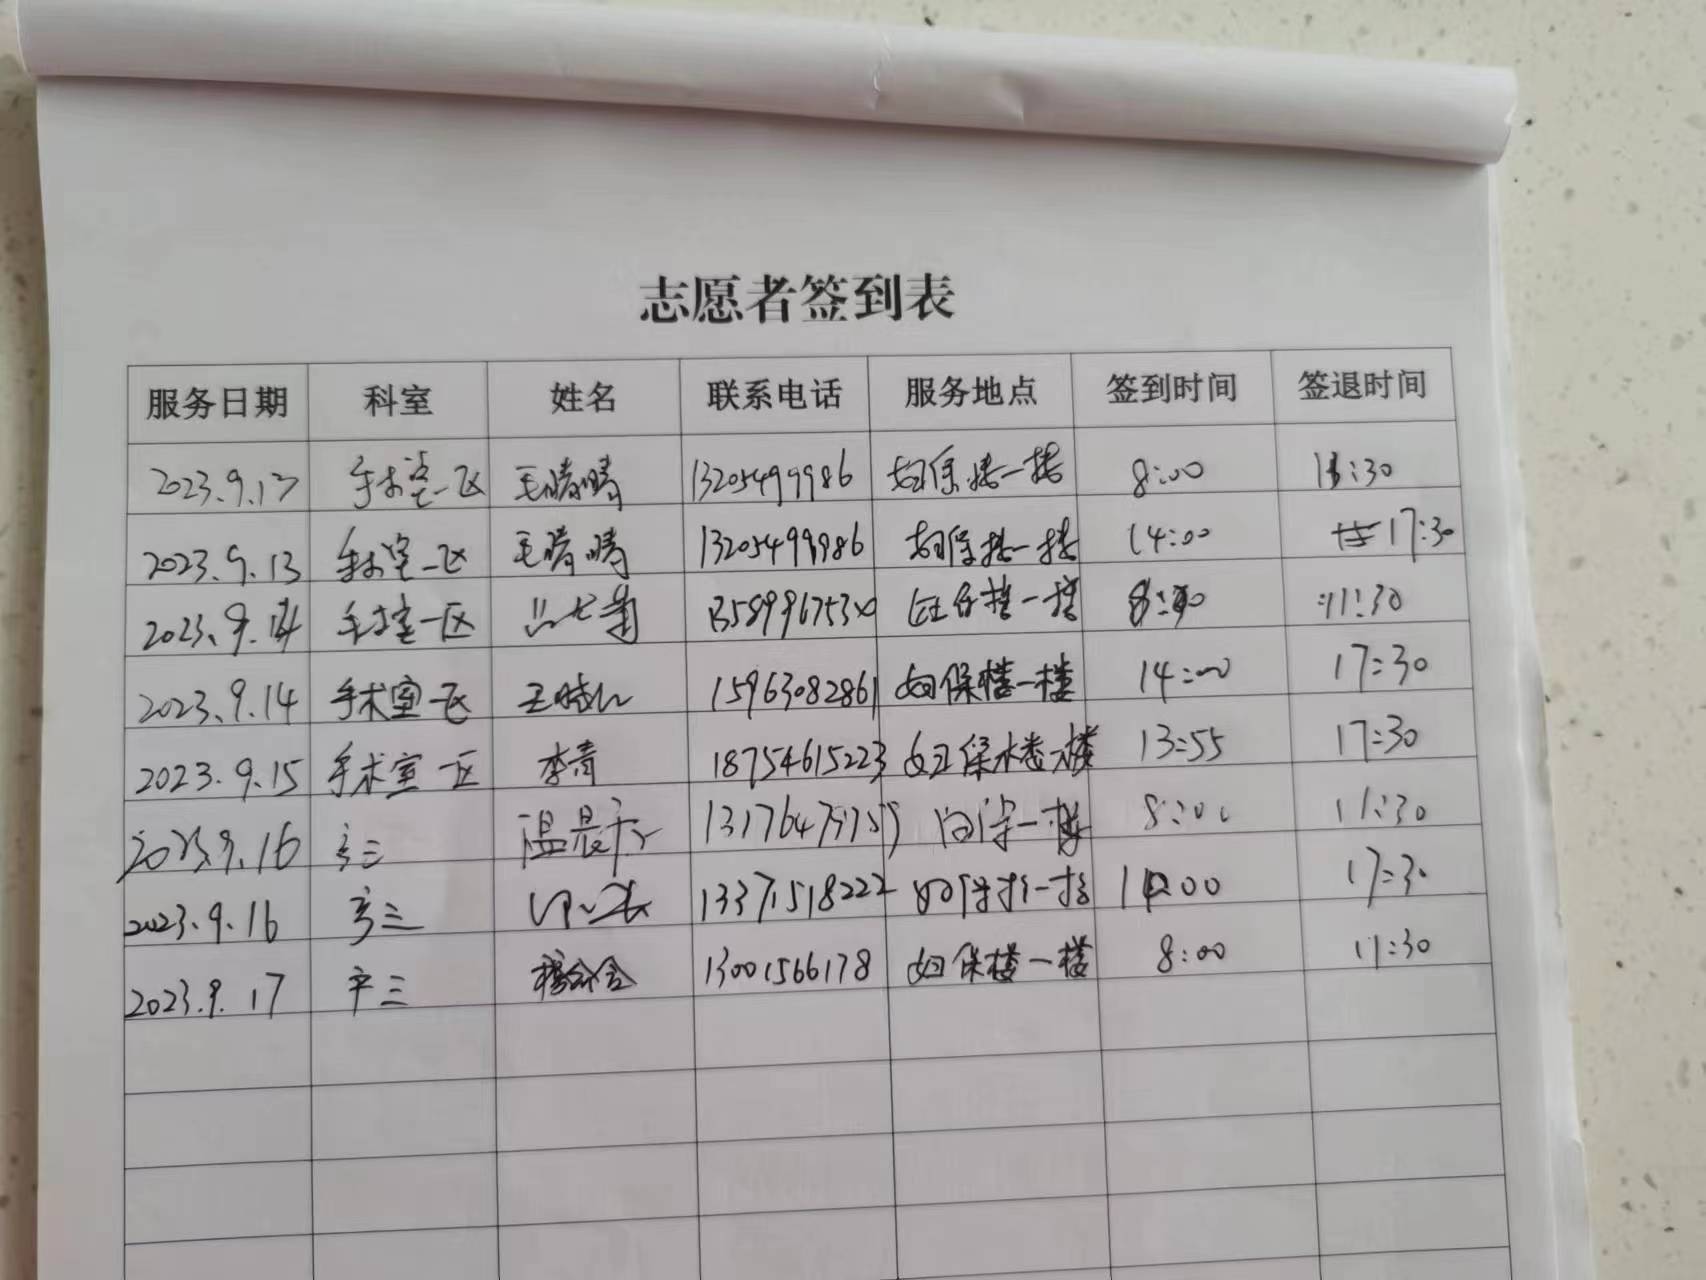 志愿者签到表
服务日期 科室 姓名 联系电话 服务地点 签到时间 签退时间
2023.9.13 手术室一区 毛晴晴 13205499986 妇保楼一楼 8:00 11:30
2023.9.13 手术室一区 毛晴晴 13205499986 妇保楼一楼 14:00 17:30
2023.9.14 手术室一区 妇保楼一楼 11:30
2023.9.14 手术室一区 15963082861 妇保楼一楼 14:00 17:30
2023.9.15 手术室一区 李青 18754615223 妇保楼一楼 13:55 17:30
2023.9.16 产三 温晨 一楼 8:00 11:30
2023.9.16 产三 13371518222 妇保楼一楼 17:30
2023.9.17 产三 13001566178 妇保楼一楼 8:00 11:30